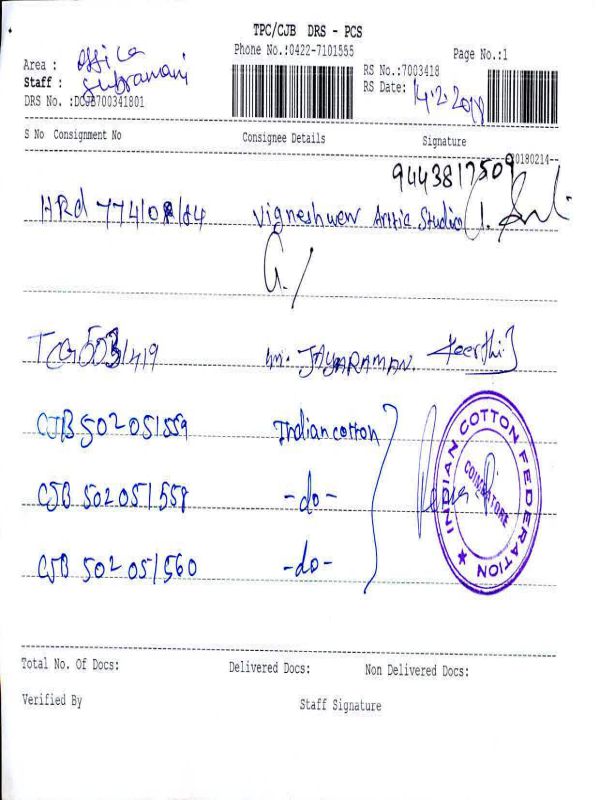 TPC/CJB DRS - PCS
Phone No.:0422-7101555
Page No.:1
Area : office
Staff : Subramani
RS No.:7003418
RS Date: 14.2.2018
DRS No. :DCJB700341801
S No Consignment No Consignee Details Signature
20180214--
9443817509
HRd 77410 /84 Vigneshwer Arttic Studio
G./
TCG 553/419 Mr. JAYARAMAN. Keerthi.J
CJB 502051559 Indian cotton
CJB 502051558 -do-
CJB 502051560 -do-
INDIAN COTTON FEDERATION
COIMBATORE
Total No. Of Docs: Delivered Docs: Non Delivered Docs:
Verified By Staff Signature